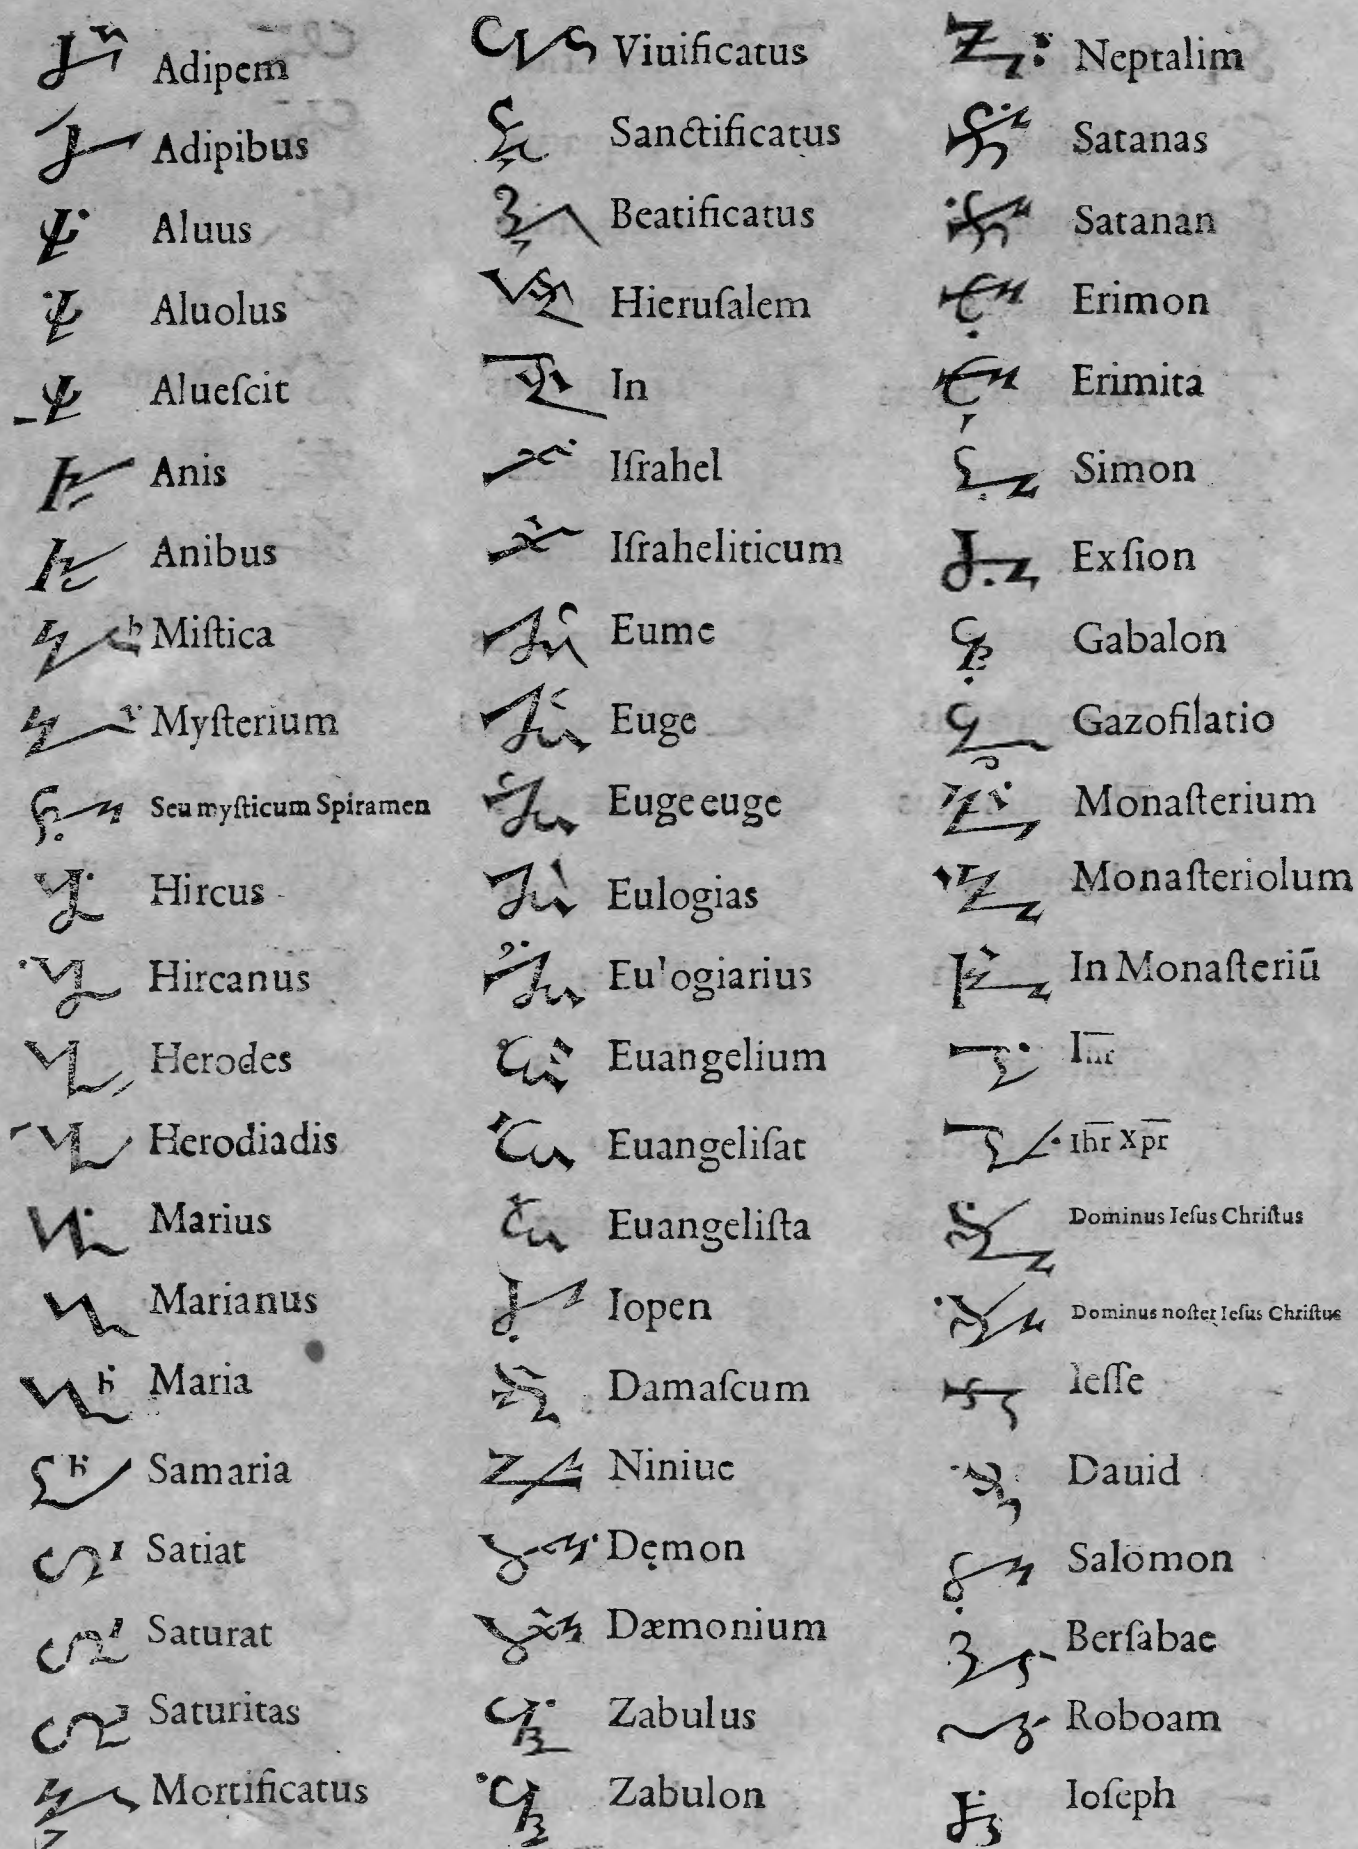 Adipem
Adipibus
Aluus
Aluolus
Alueſcit
Anis
Anibus
Miſtica
Myſterium
Seu myſticum Spiramen
Hircus
Hircanus
Herodes
Herodiadis
Marius
Marianus
Maria
Samaria
Satiat
Saturat
Saturitas
Mortificatus
Viuificatus
Sanctificatus
Beatificatus
Hieruſalem
In
Iſrahel
Iſraheliticum
Eume
Euge
Euge euge
Eulogias
Eulogiarius
Euangelium
Euangeliſat
Euangeliſta
Iopen
Damaſcum
Niniue
Dęmon
Dæmonium
Zabulus
Zabulon
Neptalim
Satanas
Satanan
Erimon
Erimita
Simon
Exſion
Gabalon
Gazofilatio
Monaſterium
Monaſteriolum
In Monaſteriū
Ih̅r̅
Ih̅r̅ Xp̅r̅
Dominus Ieſus Chriſtus
Dominus noſter Ieſus Chriſtus
Ieſſe
Dauid
Salomon
Berſabae
Roboam
Ioſeph